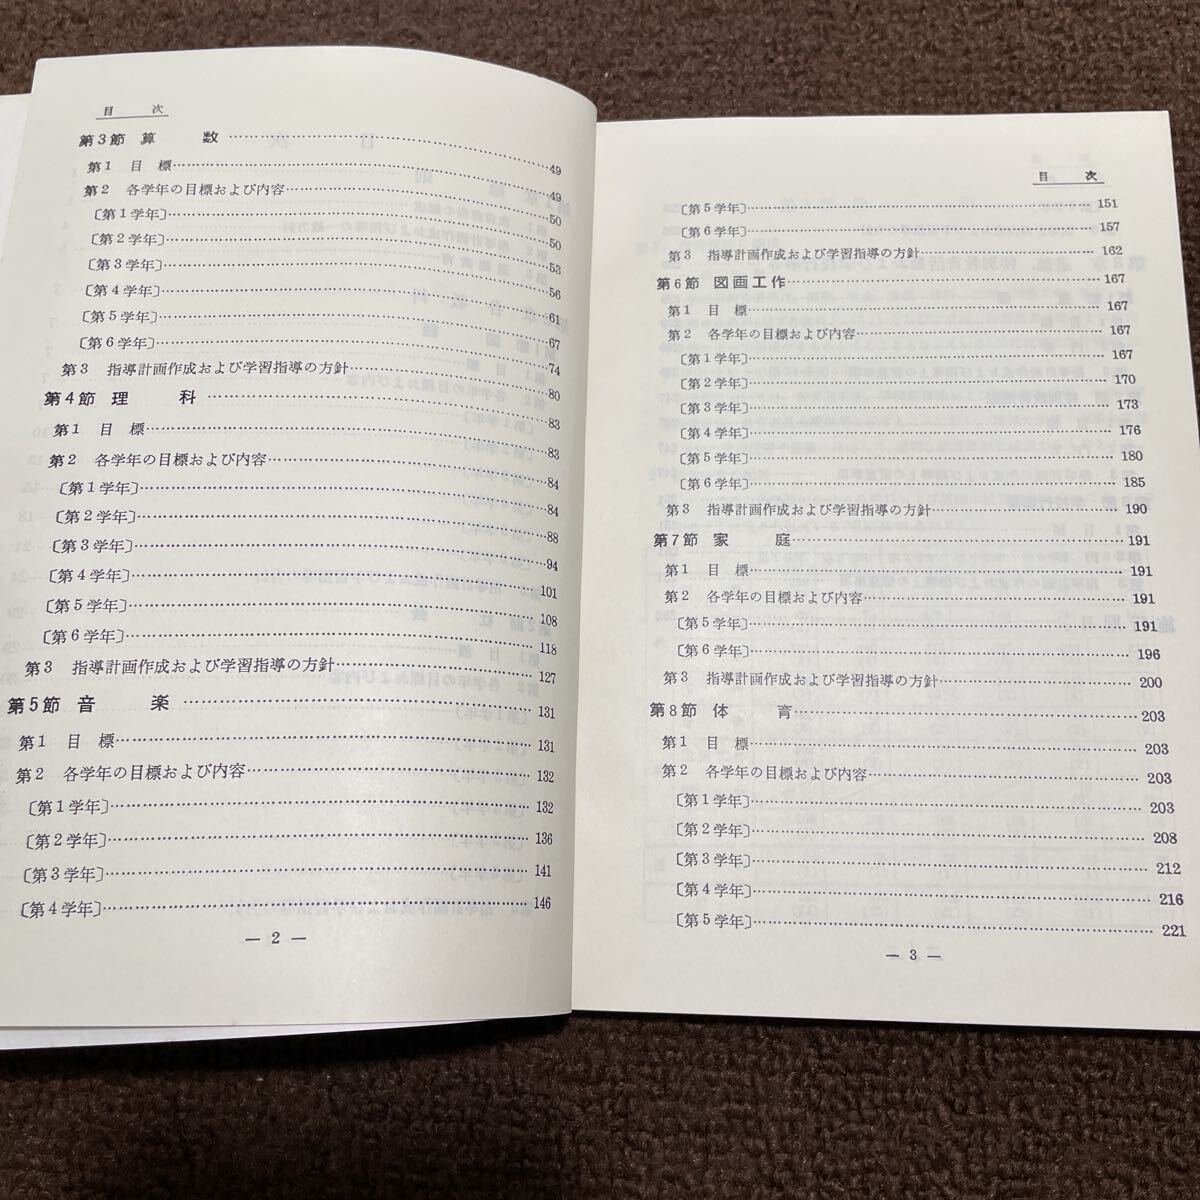 目　次
第3節 算　数……49
第1 目 標……49
第2 各学年の目標および内容……50
〔第1学年〕……50
〔第2学年〕……53
〔第3学年〕……56
〔第4学年〕……61
〔第5学年〕……67
〔第6学年〕……74
第3 指導計画作成および学習指導の方針……80
第4節 理　科……83
第1 目 標……83
第2 各学年の目標および内容……84
〔第1学年〕……84
〔第2学年〕……88
〔第3学年〕……94
〔第4学年〕……101
〔第5学年〕……108
〔第6学年〕……118
第3 指導計画作成および学習指導の方針……127
第5節 音　楽……131
第1 目 標……131
第2 各学年の目標および内容……132
〔第1学年〕……132
〔第2学年〕……136
〔第3学年〕……141
〔第4学年〕……146
— 2 —
目　次
〔第5学年〕……151
〔第6学年〕……157
第3 指導計画作成および学習指導の方針……162
第6節 図画工作……167
第1 目 標……167
第2 各学年の目標および内容……167
〔第1学年〕……167
〔第2学年〕……170
〔第3学年〕……173
〔第4学年〕……176
〔第5学年〕……180
〔第6学年〕……185
第3 指導計画作成および学習指導の方針……190
第7節 家　庭……191
第1 目 標……191
第2 各学年の目標および内容……191
〔第5学年〕……191
〔第6学年〕……196
第3 指導計画作成および学習指導の方針……200
第8節 体　育……203
第1 目 標……203
第2 各学年の目標および内容……203
〔第1学年〕……203
〔第2学年〕……208
〔第3学年〕……212
〔第4学年〕……216
〔第5学年〕……221
— 3 —